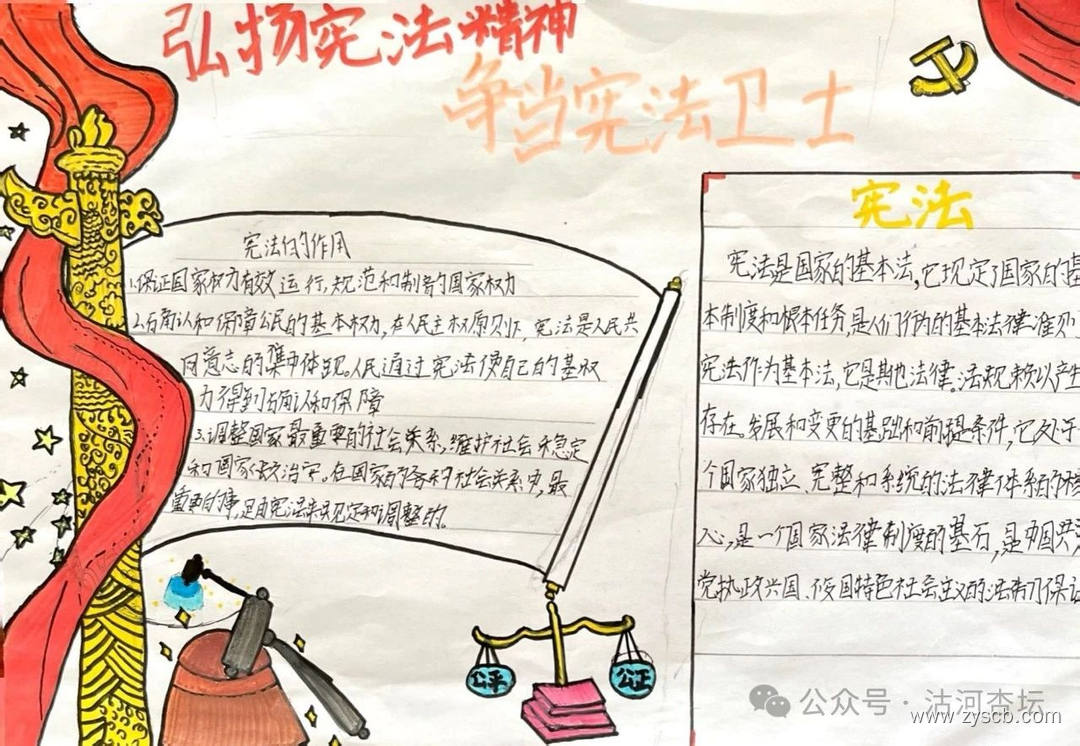 弘扬宪法精神
争当宪法卫士
宪法的作用
1.保证国家权力有效运行,规范和制约国家权力
2.确认和保障公民的基本权力,在人民主权原则下,宪法是人民共
同意志的集中体现。人民通过宪法使自己的基权
力得到确认和保障
3.调整国家最重要的社会关系,维护社会稳定
和国家长治安。在国家的各种社会关系中,最
重要的事,是由宪法来规定和调整的。
公平
公正
宪法
宪法是国家的基本法,它规定了国家的基
本制度和根本任务,是人们行为的基本法律准则
宪法作为基本法,它是其他法律。法规赖以产生
存在。发展和变更的基础和前提条件,它处于
个国家独立、完整和系统的法律体系的核
心,是一个国家法律制度的基石,是中国共
党执政兴国、
特色社会主义的法制保证
公众号·沽河杏坛
www.zyscb.com